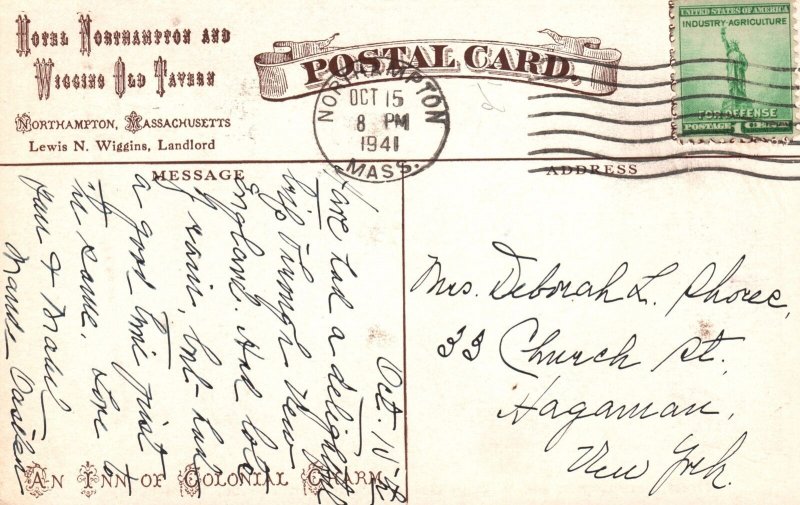 Hotel Northampton and
Wiggins Old Tavern
Northampton, Massachusetts
Lewis N. Wiggins, Landlord
POSTAL CARD
NORTHAMPTON
OCT 15
8 PM
1941
MASS.
UNITED STATES OF AMERICA
INDUSTRY-AGRICULTURE
FOR DEFENSE
POSTAGE 1 CENT
MESSAGE
ADDRESS
Oct. 15th
Have had a delightful
trip through New
England. Had lots
of rain, but have
a good time just
the same. Love to
you & Mabel
Maude
Mrs. Deborah L. Shoree,
33 Church St.
Hagaman,
New York.
An Inn of Colonial Charm